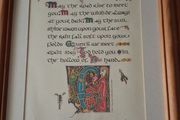 May the road rise to meet
you. May the wind be always
at your back. May the sun
shine warm upon your face
the rain fall soft upon your
fields. Until we meet
again. May God hold you in
the hollow of his hand.